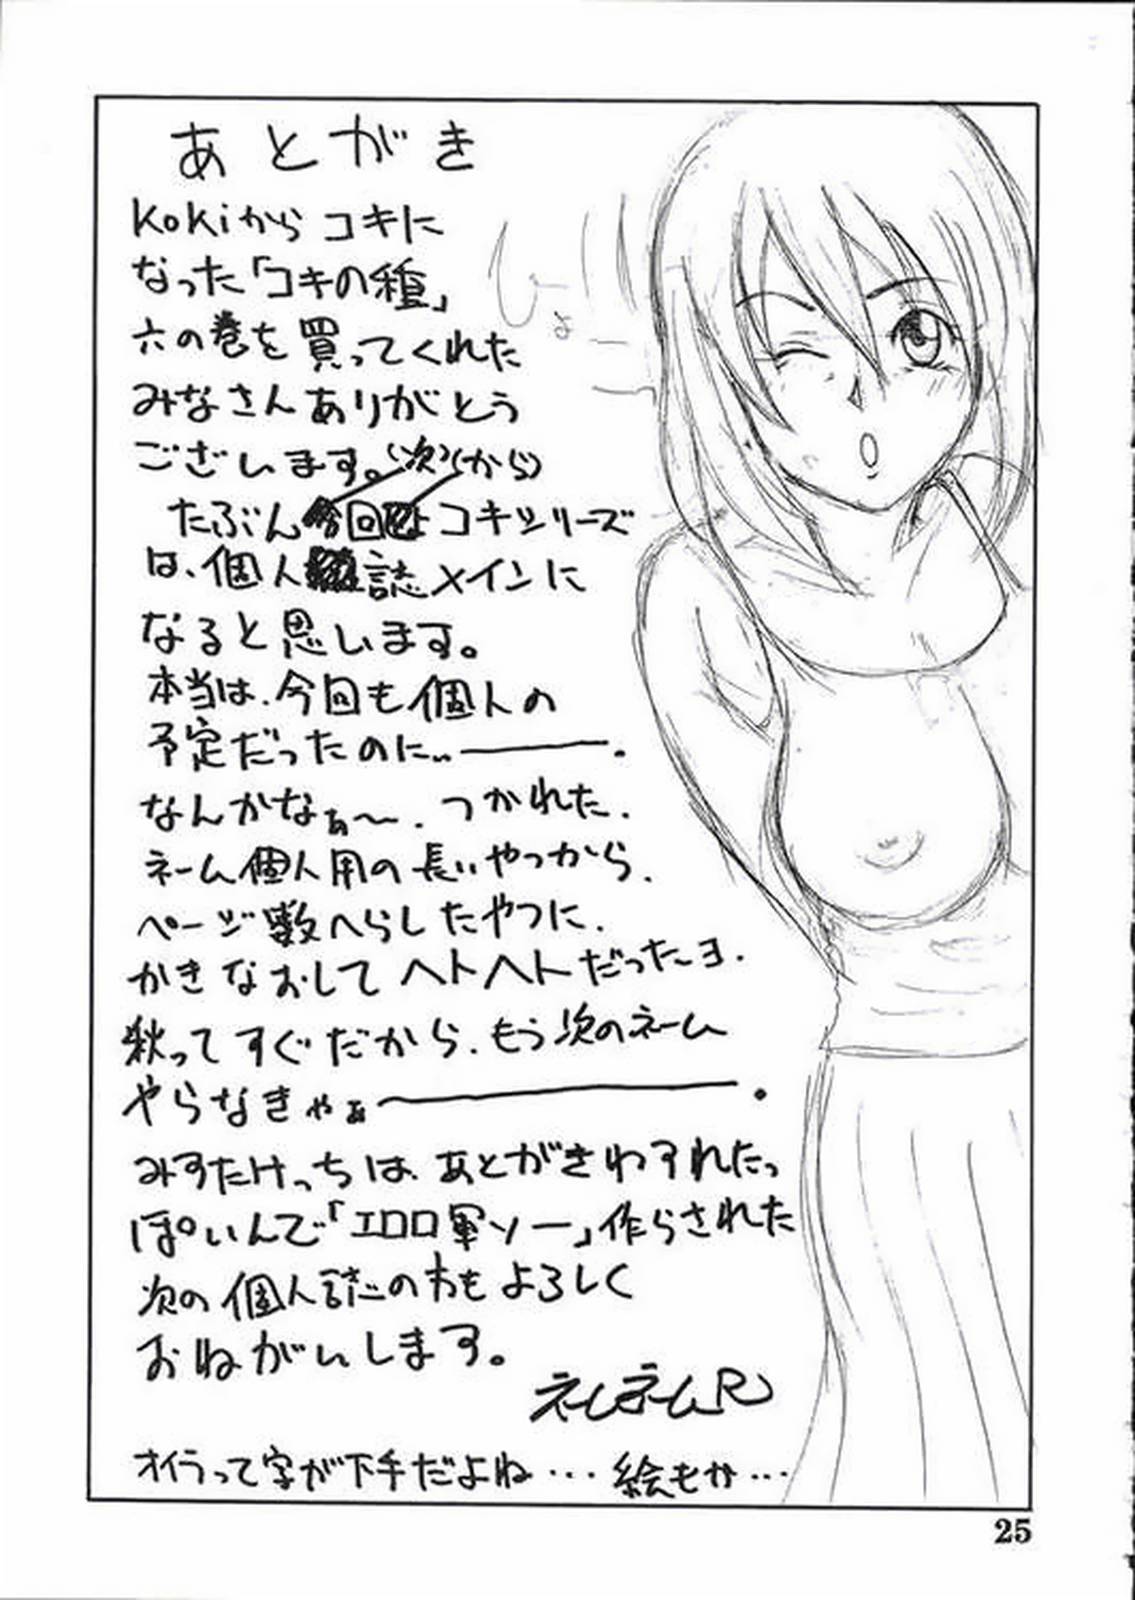 あとがき
Kokiから コキに
なった「コキの種」
六の巻を買ってくれた
みなさんありがとう
ございます。(次)(から)
たぶん 今回 コキシリーズ
は、個人誌メインに
なると思います。
本当は、今回も個人の
予定だったのに‥――。
なんかなぁ〜. つかれた.
ネーム個人用の長いやつから.
ページ数へらしたやつに.
かきなおして ヘトヘトだったーヨ.
秋ってすぐだから. もう次のネーム
やらなきゃぁ――――。
みすたけっちは、あとがきわすれたっ
ぽいんで「エロロ軍ソー」作らされた
次の個人誌の もよろしく
おねがいします。
ネームネームR
オイラって字が下手だよね… 絵もか…
ひょー
25